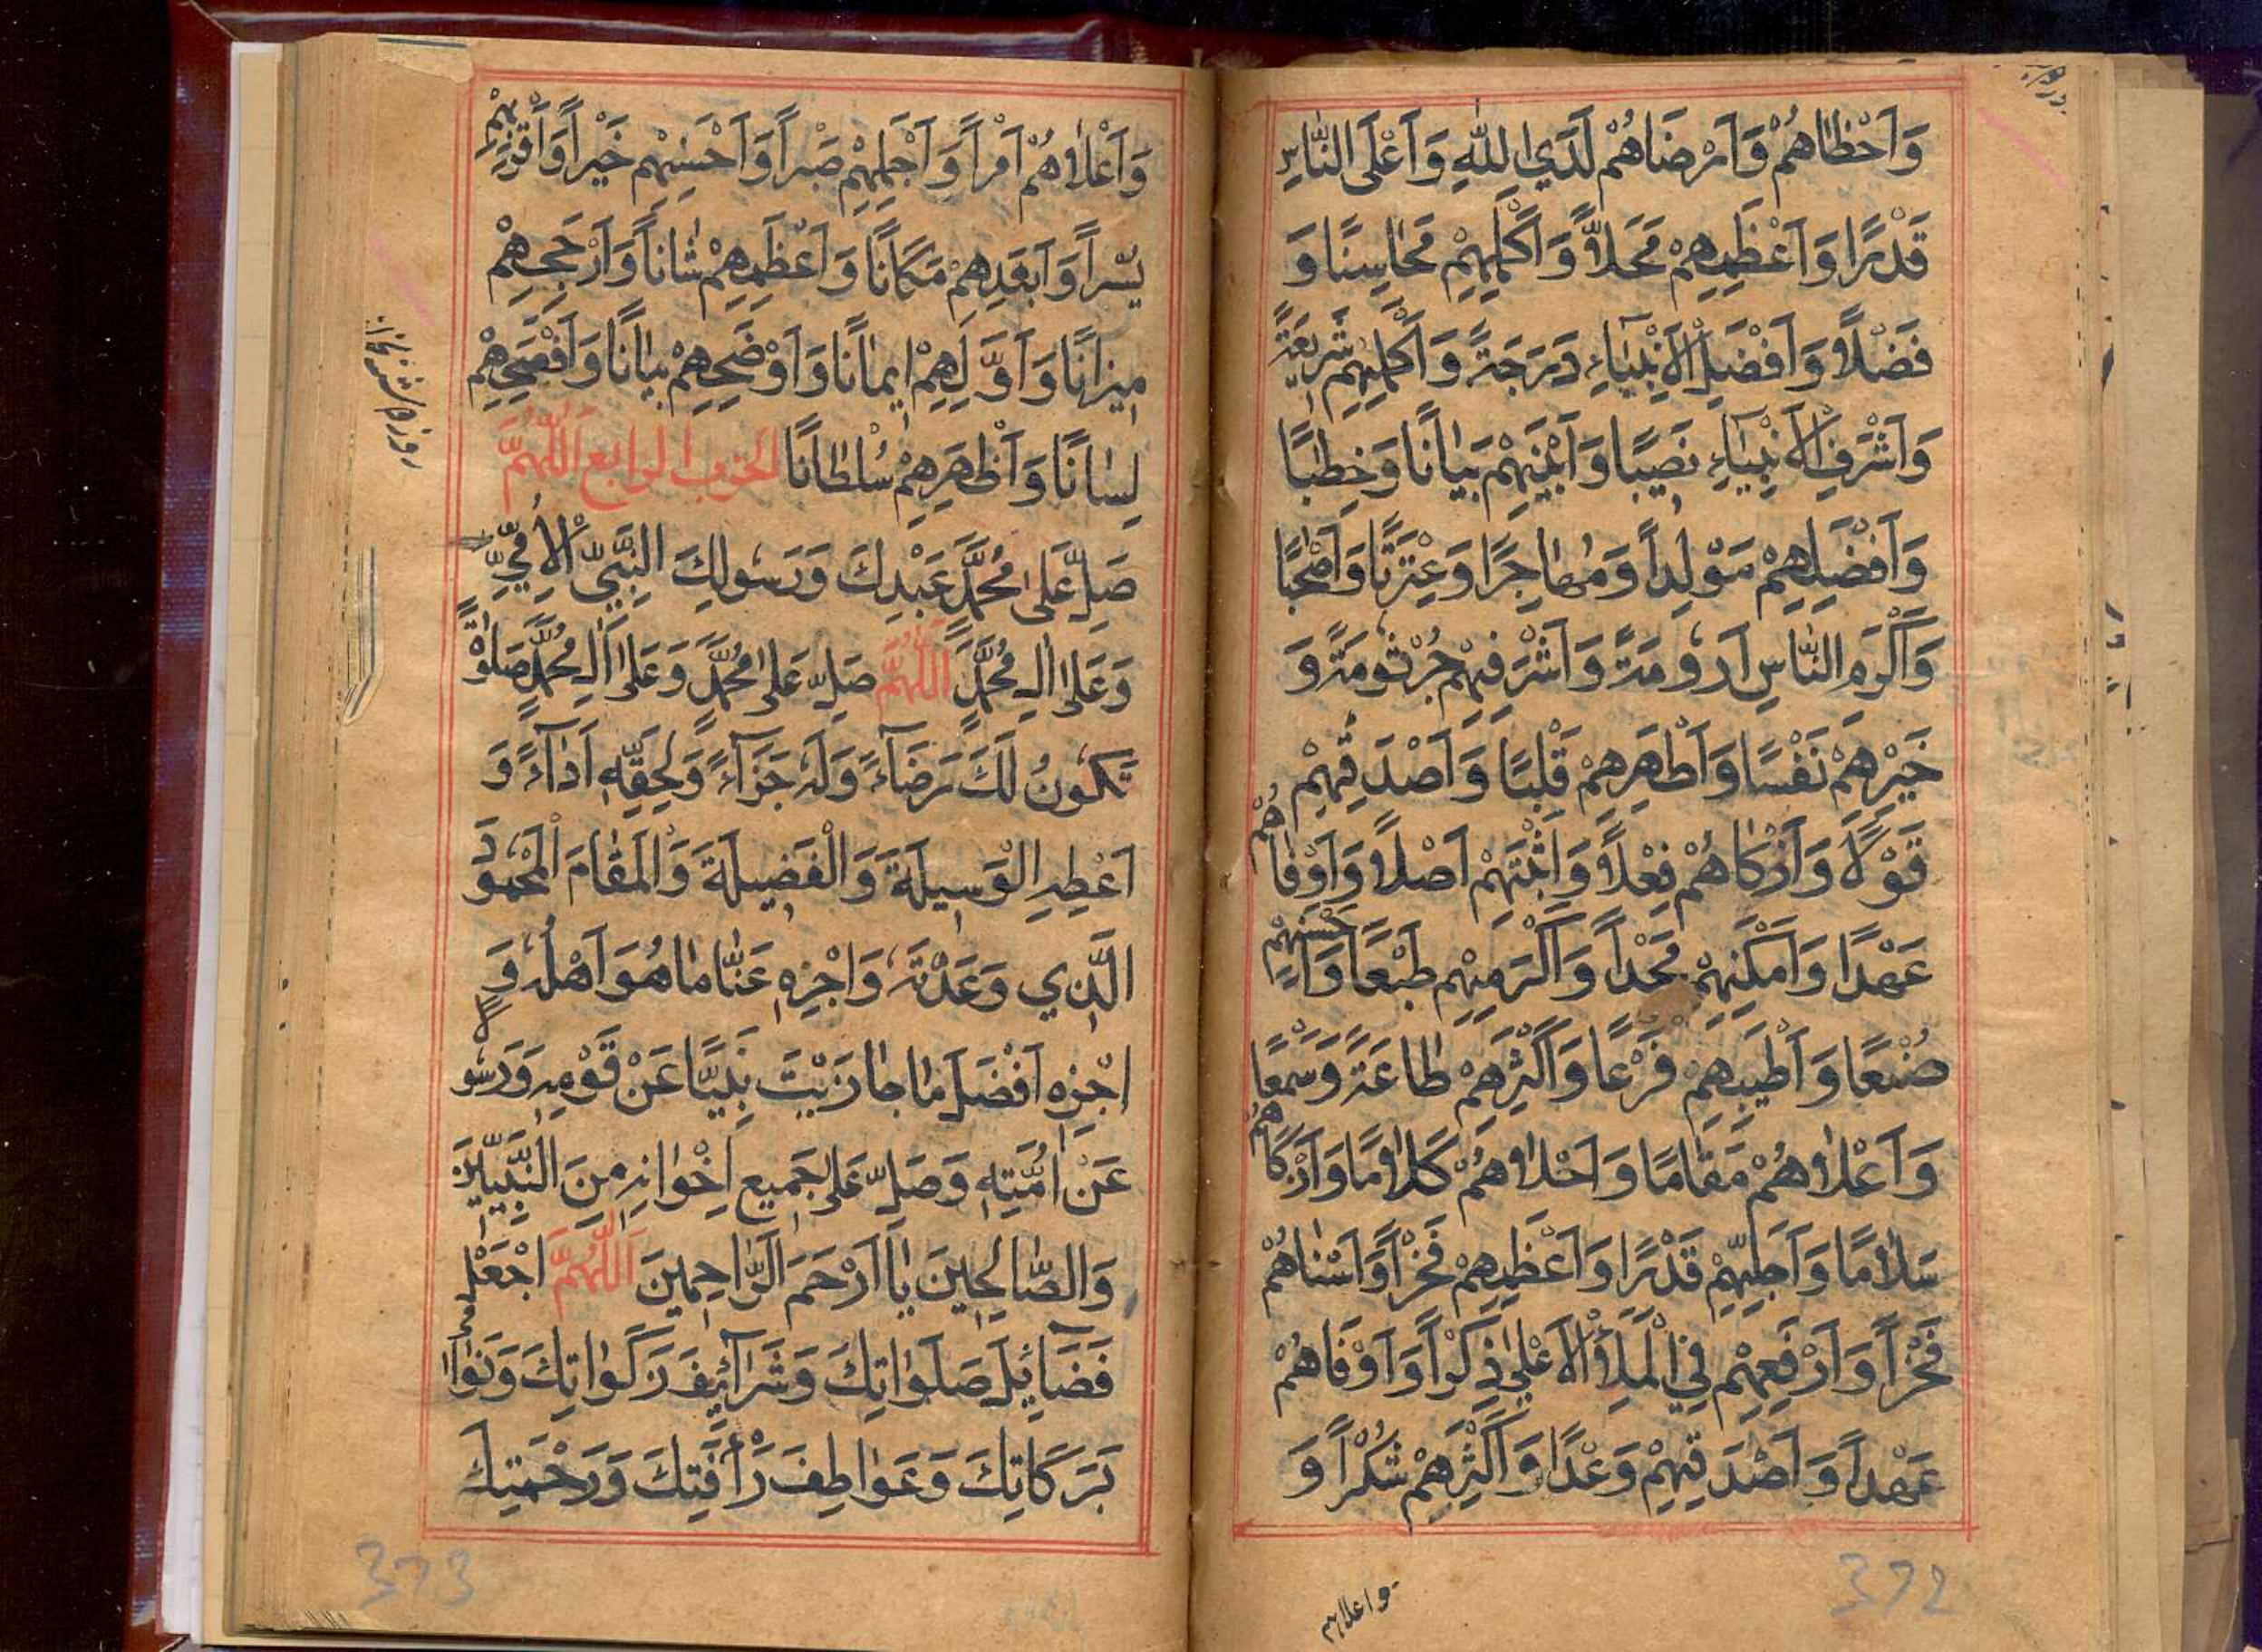 وَاَحْظَاهُمْ وَاَرْضَاهُمْ لَدَي اللهِ وَاَعْلَى النَّاسِ
قَدْرًا وَاَعْظَمِهِمْ مَحَلًّا وَاَكْمَلِهِمْ مَحَاسِنًا وَ
فَضْلًا وَاَفْضَلِ الْاَنْبِيَاءِ دَرَجَةً وَاَكْمَلِهِمْ شَرِيْعَةً
وَاَشْرَفِ الْاَنْبِيَاءِ نَصِيْبًا وَاَبْيَنِهِمْ بَيَانًا وَخِطَابًا
وَاَفْضَلِهِمْ مَوْلِدًا وَمُهَاجَرًا وَعِتْرَتًا وَاَصْحَابًا
وَاَكْرَمِ النَّاسِ اَرُوْمَةً وَاَشْرَفِهِمْ جُرْثُوْمَةً وَ
خَيْرِهِمْ نَفْسًا وَاَطْهَرِهِمْ قَلْبًا وَاَصْدَقِهِمْ
قَوْلًا وَاَزْكَاهُمْ فِعْلًا وَاَثْبَتِهِمْ اَصْلًا وَاَوْفَاهُمْ
عَهْدًا وَاَمْكَنِهِمْ مَجْدًا وَاَكْرَمِهِمْ طَبْعًا وَاَحْسَنِهِمْ
صُنْعًا وَاَطْيَبِهِمْ فَرْعًا وَاَكْثَرِهِمْ طَاعَةً وَسَمْعًا
وَاَعْلَاهُمْ مَقَامًا وَاَحْلَاهُمْ كَلَامًا وَاَزْكَاهُمْ
سَلَامًا وَاَجَلِّهِمْ قَدْرًا وَاَعْظَمِهِمْ فَخْرًا وَاَسْنَاهُمْ
فَخْرًا وَاَرْفَعِهِمْ فِي الْمَلَأِ الْاَعْلَى ذِكْرًا وَاَوْفَاهُمْ
عَهْدًا وَاَصْدَقِهِمْ وَعْدًا وَاَكْثَرِهِمْ شُكْرًا وَ
واعلاهم
372
وَاَعْلَاهُمْ اَمْرًا وَاَجْمَلِهِمْ صَبْرًا وَاَحْسَنِهِمْ خَيْرًا وَاَقْرَبِهِمْ
يُسْرًا وَاَبْعَدِهِمْ مَكَانًا وَاَعْظَمِهِمْ شَانًا وَاَرْجَحِهِمْ
مِيزَانًا وَاَوَّلِهِمْ اِيمَانًا وَاَوْضَحِهِمْ بَيَانًا وَاَفْصَحِهِمْ
لِسَانًا وَاَظْهَرِهِمْ سُلْطَانًا الحزب الرابع اَللّٰهُمَّ
صَلِّ عَلٰى مُحَمَّدٍ عَبْدِكَ وَرَسُولِكَ النَّبِيِّ الْاُمِّيِّ
وَعَلٰى اٰلِ مُحَمَّدٍ اَللّٰهُمَّ صَلِّ عَلٰى مُحَمَّدٍ وَعَلٰى اٰلِ مُحَمَّدٍ صَلٰوةً
تَكُونُ لَكَ رِضَآءً وَلَهُ جَزَآءً وَلِحَقِّهِ اَدَآءً وَ
اَعْطِهِ الْوَسِيلَةَ وَالْفَضِيلَةَ وَالْمَقَامَ الْمَحْمُودَ
الَّذِي وَعَدْتَهُ وَاجْزِهِ عَنَّا مَا هُوَ اَهْلُهُ وَ
اجْزِهِ اَفْضَلَ مَا جَازَيْتَ نَبِيًّا عَنْ قَوْمِهِ وَرَسُولًا
عَنْ اُمَّتِهِ وَصَلِّ عَلٰى جَمِيعِ اِخْوَانِهِ مِنَ النَّبِيِّينَ
وَالصَّالِحِينَ يَا اَرْحَمَ الرَّاحِمِينَ اَللّٰهُمَّ اجْعَلْ
فَضَائِلَ صَلَوَاتِكَ وَشَرَآئِفَ زَكَوَاتِكَ وَنَوَامِيَ
بَرَكَاتِكَ وَعَوَاطِفَ رَأْفَتِكَ وَرَحْمَتِكَ
373